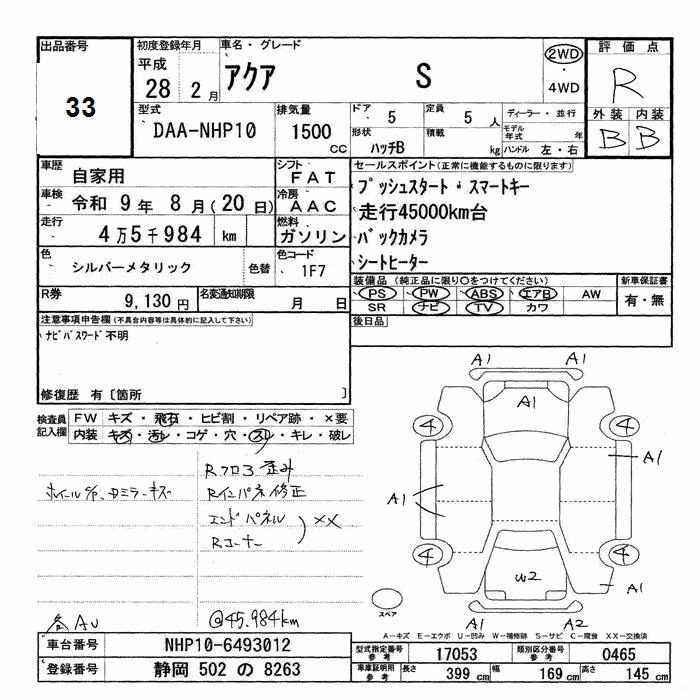 出品番号
33
初度登録年月
平成
28 2 月
車名・グレード
アクア S
2WD
・
4WD
評価点
R
外装 内装
B B
型式
DAA-NHP10
排気量
1500 CC
ドア 5
定員 5 人
ディーラー・並行
形状 ハッチB
積載 kg
モデル年式 年
ハンドル 左・右
車歴
自家用
シフト
FAT
車検
令和 9 年 8 月 (20 日)
冷房
AAC
走行
4 万 5 千 984 km
燃料
ガソリン
色
シルバーメタリック
色替
色コード
1F7
R券
9,130 円
名変通知期限
月 日
セールスポイント(正常に機能するものに限ります)
プッシュスタート・スマートキー
走行45000km台
バックカメラ
シートヒーター
装備品 (純正品に限り○をつけてください)
PS PW ABS エアB AW
SR ナビ TV カワ
新車保証書
有・無
後日品
注意事項申告欄 (不具合内容等は具体的に記入して下さい)
ナビパスワード不明
修復歴 有〔箇所 〕
検査員記入欄
FW キズ・飛石・ヒビ割・リペア跡・×要
内装 キズ・汚レ・コゲ・穴・スレ・キレ・破レ
Rフロア歪み
ホイールC/P、Dミラーキズ
Rインパネ修正
エンドパネル
Rコーナー
××
@45.984km
A1 A1
A1
4 4
A1
A1
4 4
W2
A1
A1 A2
スペア
A-キズ E-エクボ U-凹み W-補修跡 S-サビ C-腐食 XX-交換済
車台番号
NHP10-6493012
登録番号
静岡 502 の 8263
型式指定番号 参考
17053
類別区分番号 参考
0465
車庫証明用 参考
長さ 399 cm
幅 169 cm
高さ 145 cm